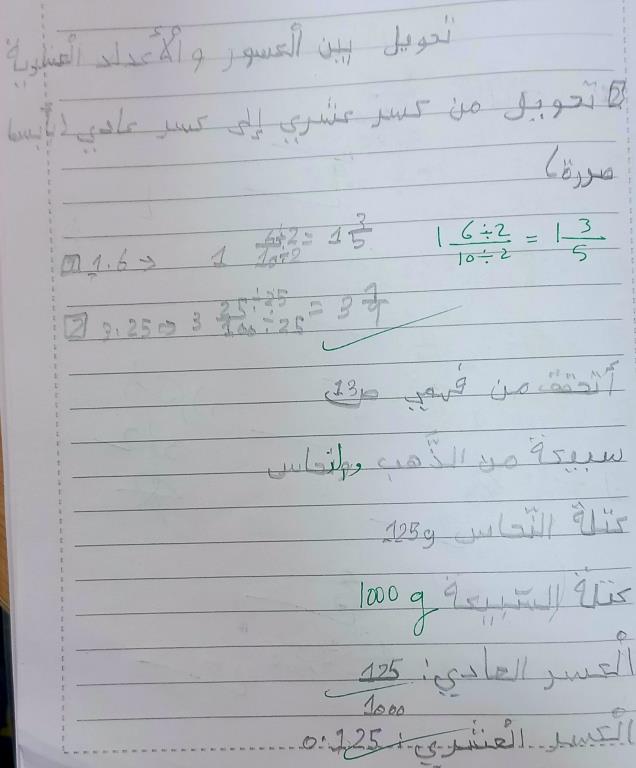 تحويل بين الكسور والأعداد العشرية
2 تحويل من كسر عشري إلى كسر عادي (بأبسط
صورة)
1 1.6 → 1 6÷2/10÷2 = 1 3/5 1 6÷2/10÷2 = 1 3/5
2 3.25 → 3 25÷25/100÷25 = 3 1/4
أتحقق من فهمي ص13
سبيكة من الذهب والنحاس
كتلة النحاس 125g
كتلة السبيكة 1000 g
الكسر العادي: 125/1000
الكسر العشري: 0.125